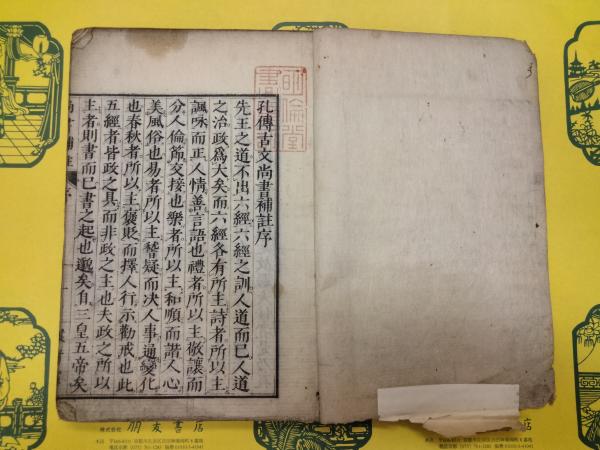 孔傳古文尚書補註序
先王之道不出六經六經之訓人道而已人道
之治政爲大矣而六經各有所主詩者所以主
諷咏而正人情善言語也禮者所以主敬讓而
分人倫節交接也樂者所以主和順而諧人心
美風俗也易者所以主嵆疑而決人事通變化
也春秋者所以主褒貶而擇人行示勸戒也此
五經者皆政之具而非政之主也夫政之所以
主者則書而已書之起也邈矣自三皇五帝矣
明倫堂
株式会社 朋友書店